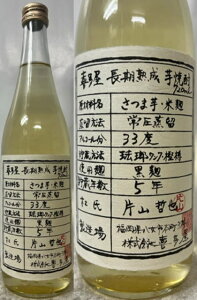 喜多屋 長期熟成 芋焼酎
720ml
原材料名 さつま芋・米麹
蒸留方法 常圧蒸留
アルコール分 33度
貯蔵方法 琺瑯タンク・樫樽
使用麹 黒麹
貯蔵年数 5年
杜氏 片山哲也
製造場
福岡県八女市本町
株式会社 喜多屋